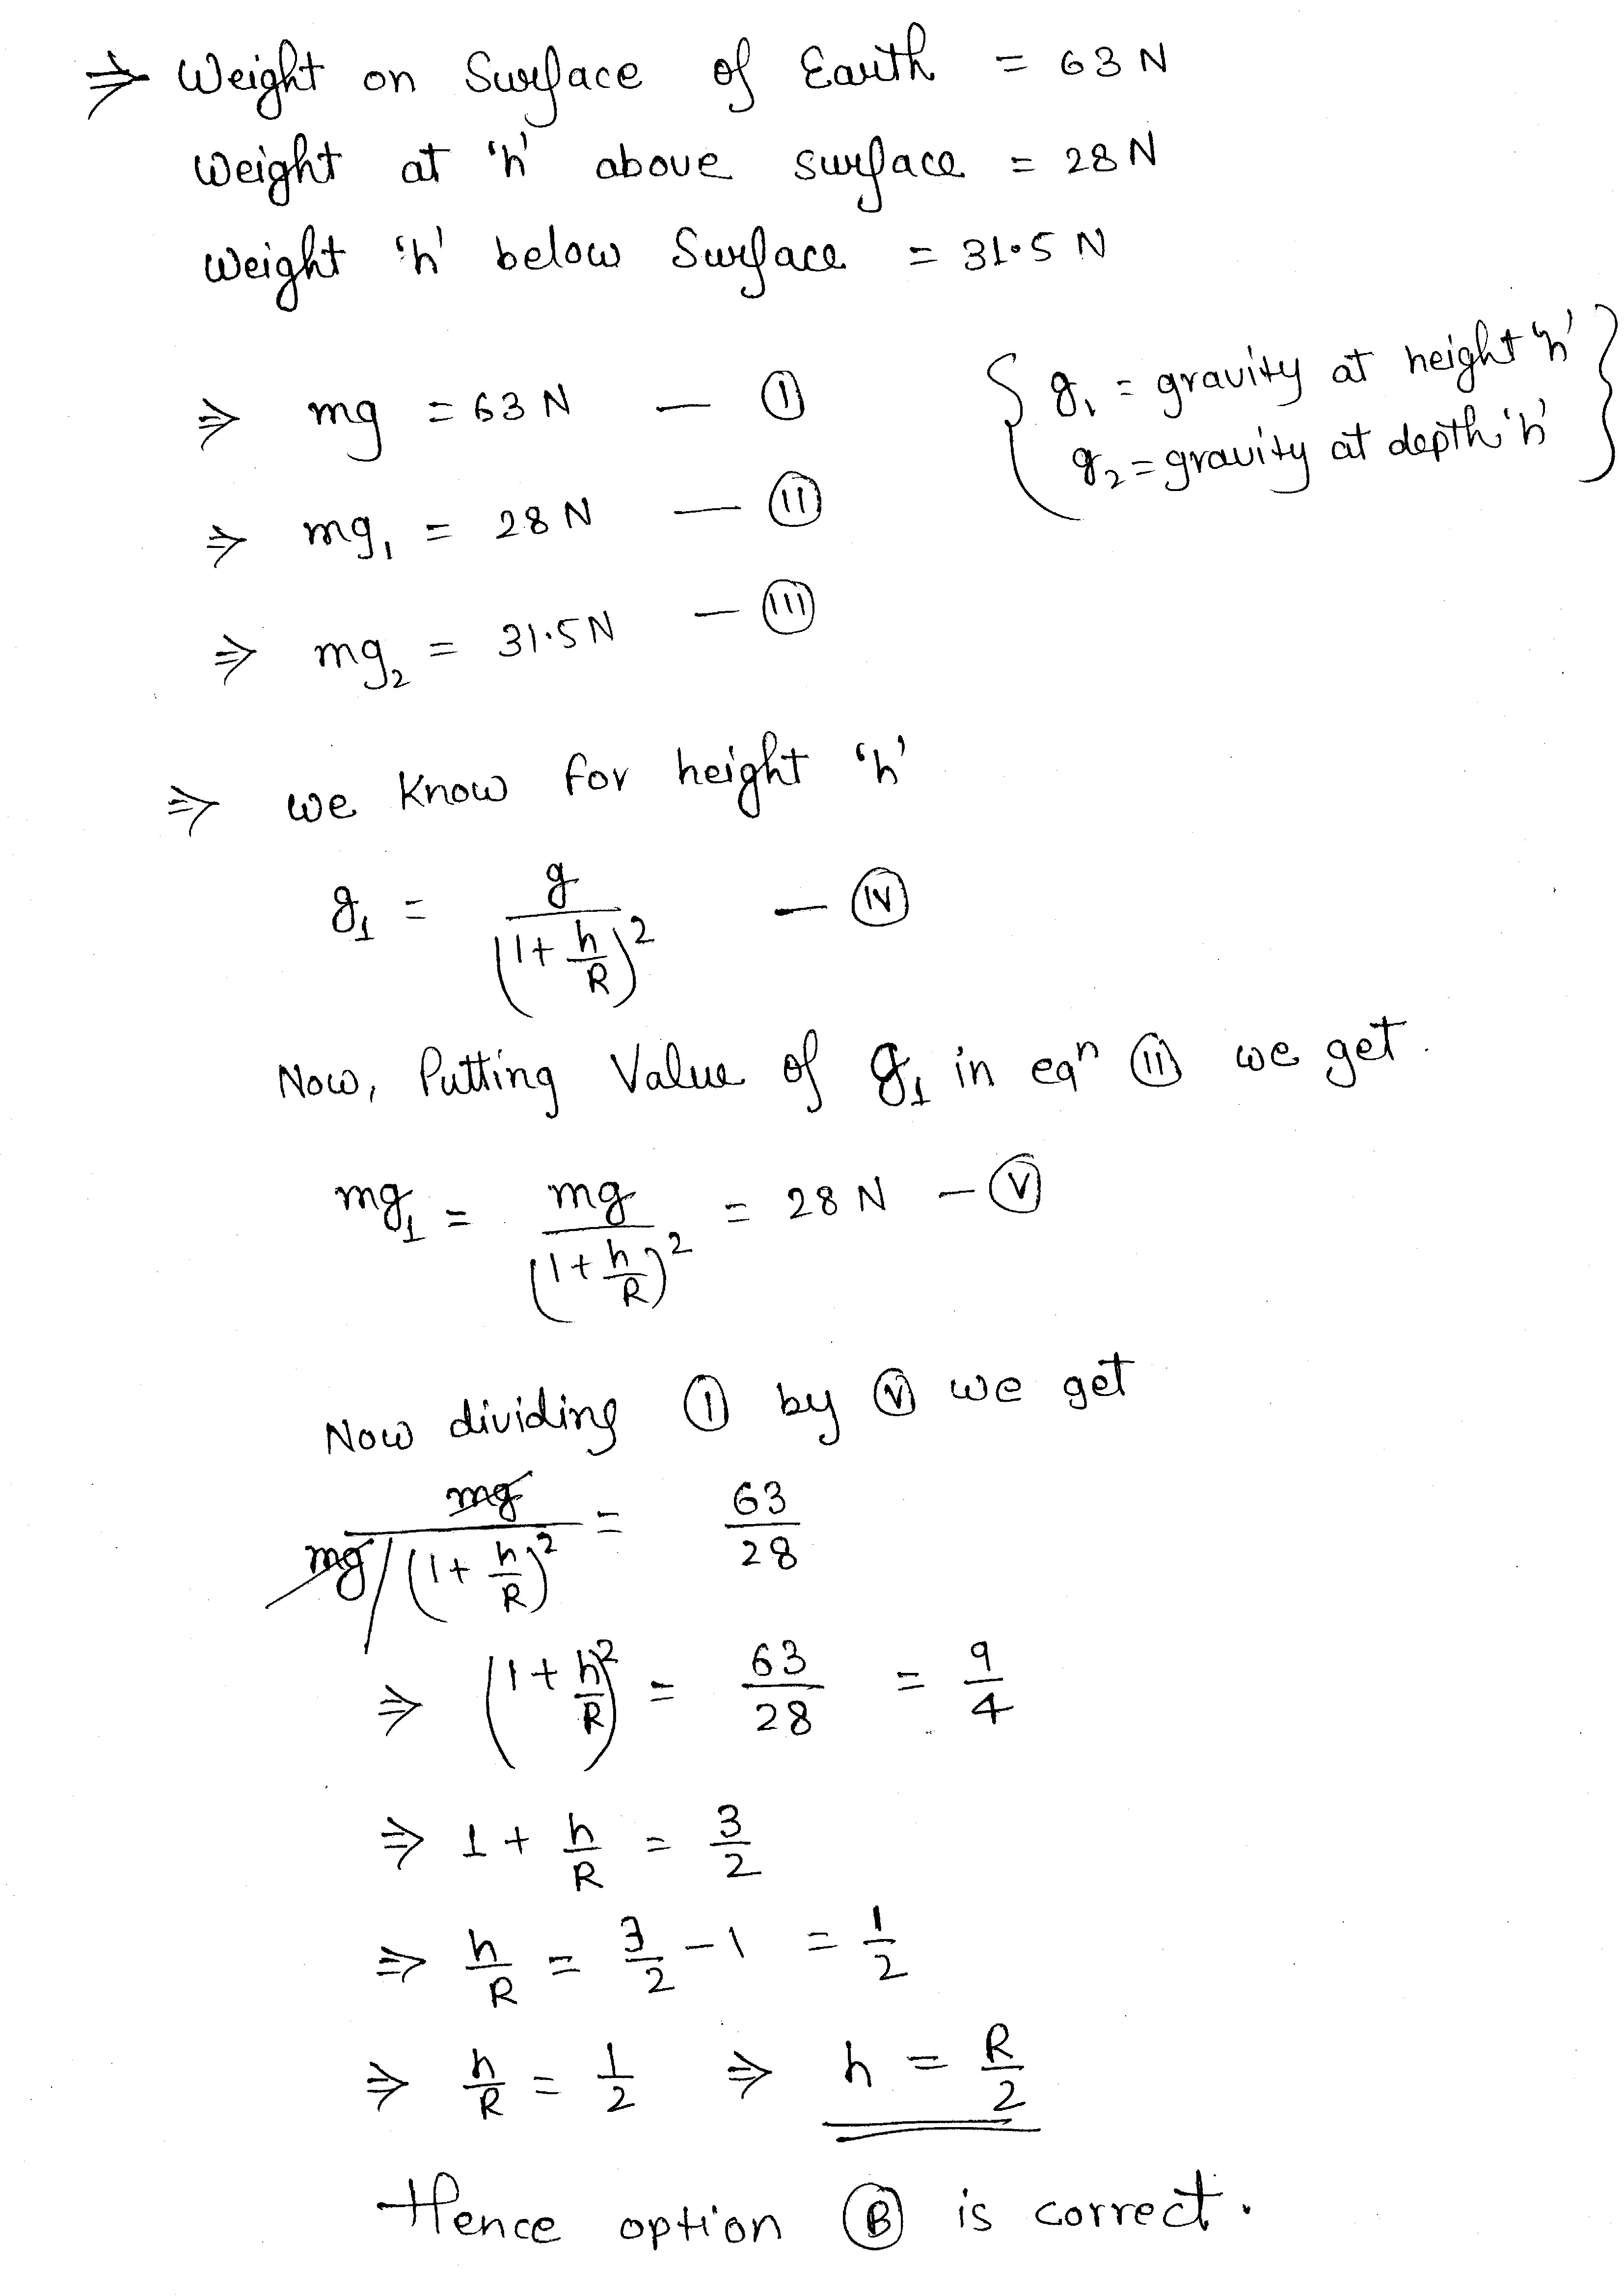 ⇒ Weight on Surface of Earth = 63 N
Weight at 'h' above surface = 28 N
Weight 'h' below Surface = 31.5 N
⇒ mg = 63 N — (I)
{ g₁ = gravity at height 'h'
g₂ = gravity at depth 'h' }
⇒ mg₁ = 28 N — (II)
⇒ mg₂ = 31.5 N — (III)
⇒ we Know for height 'h'
g₁ = g / (1 + h/R)² — (IV)
Now, Putting Value of g₁ in eqⁿ (II) we get.
mg₁ = mg / (1 + h/R)² = 28 N — (V)
Now dividing (I) by (V) we get
mg / (mg / (1 + h/R)²) = 63/28
⇒ (1 + h/R)² = 63/28 = 9/4
⇒ 1 + h/R = 3/2
⇒ h/R = 3/2 - 1 = 1/2
⇒ h/R = 1/2 ⇒ h = R/2
Hence option (B) is correct.